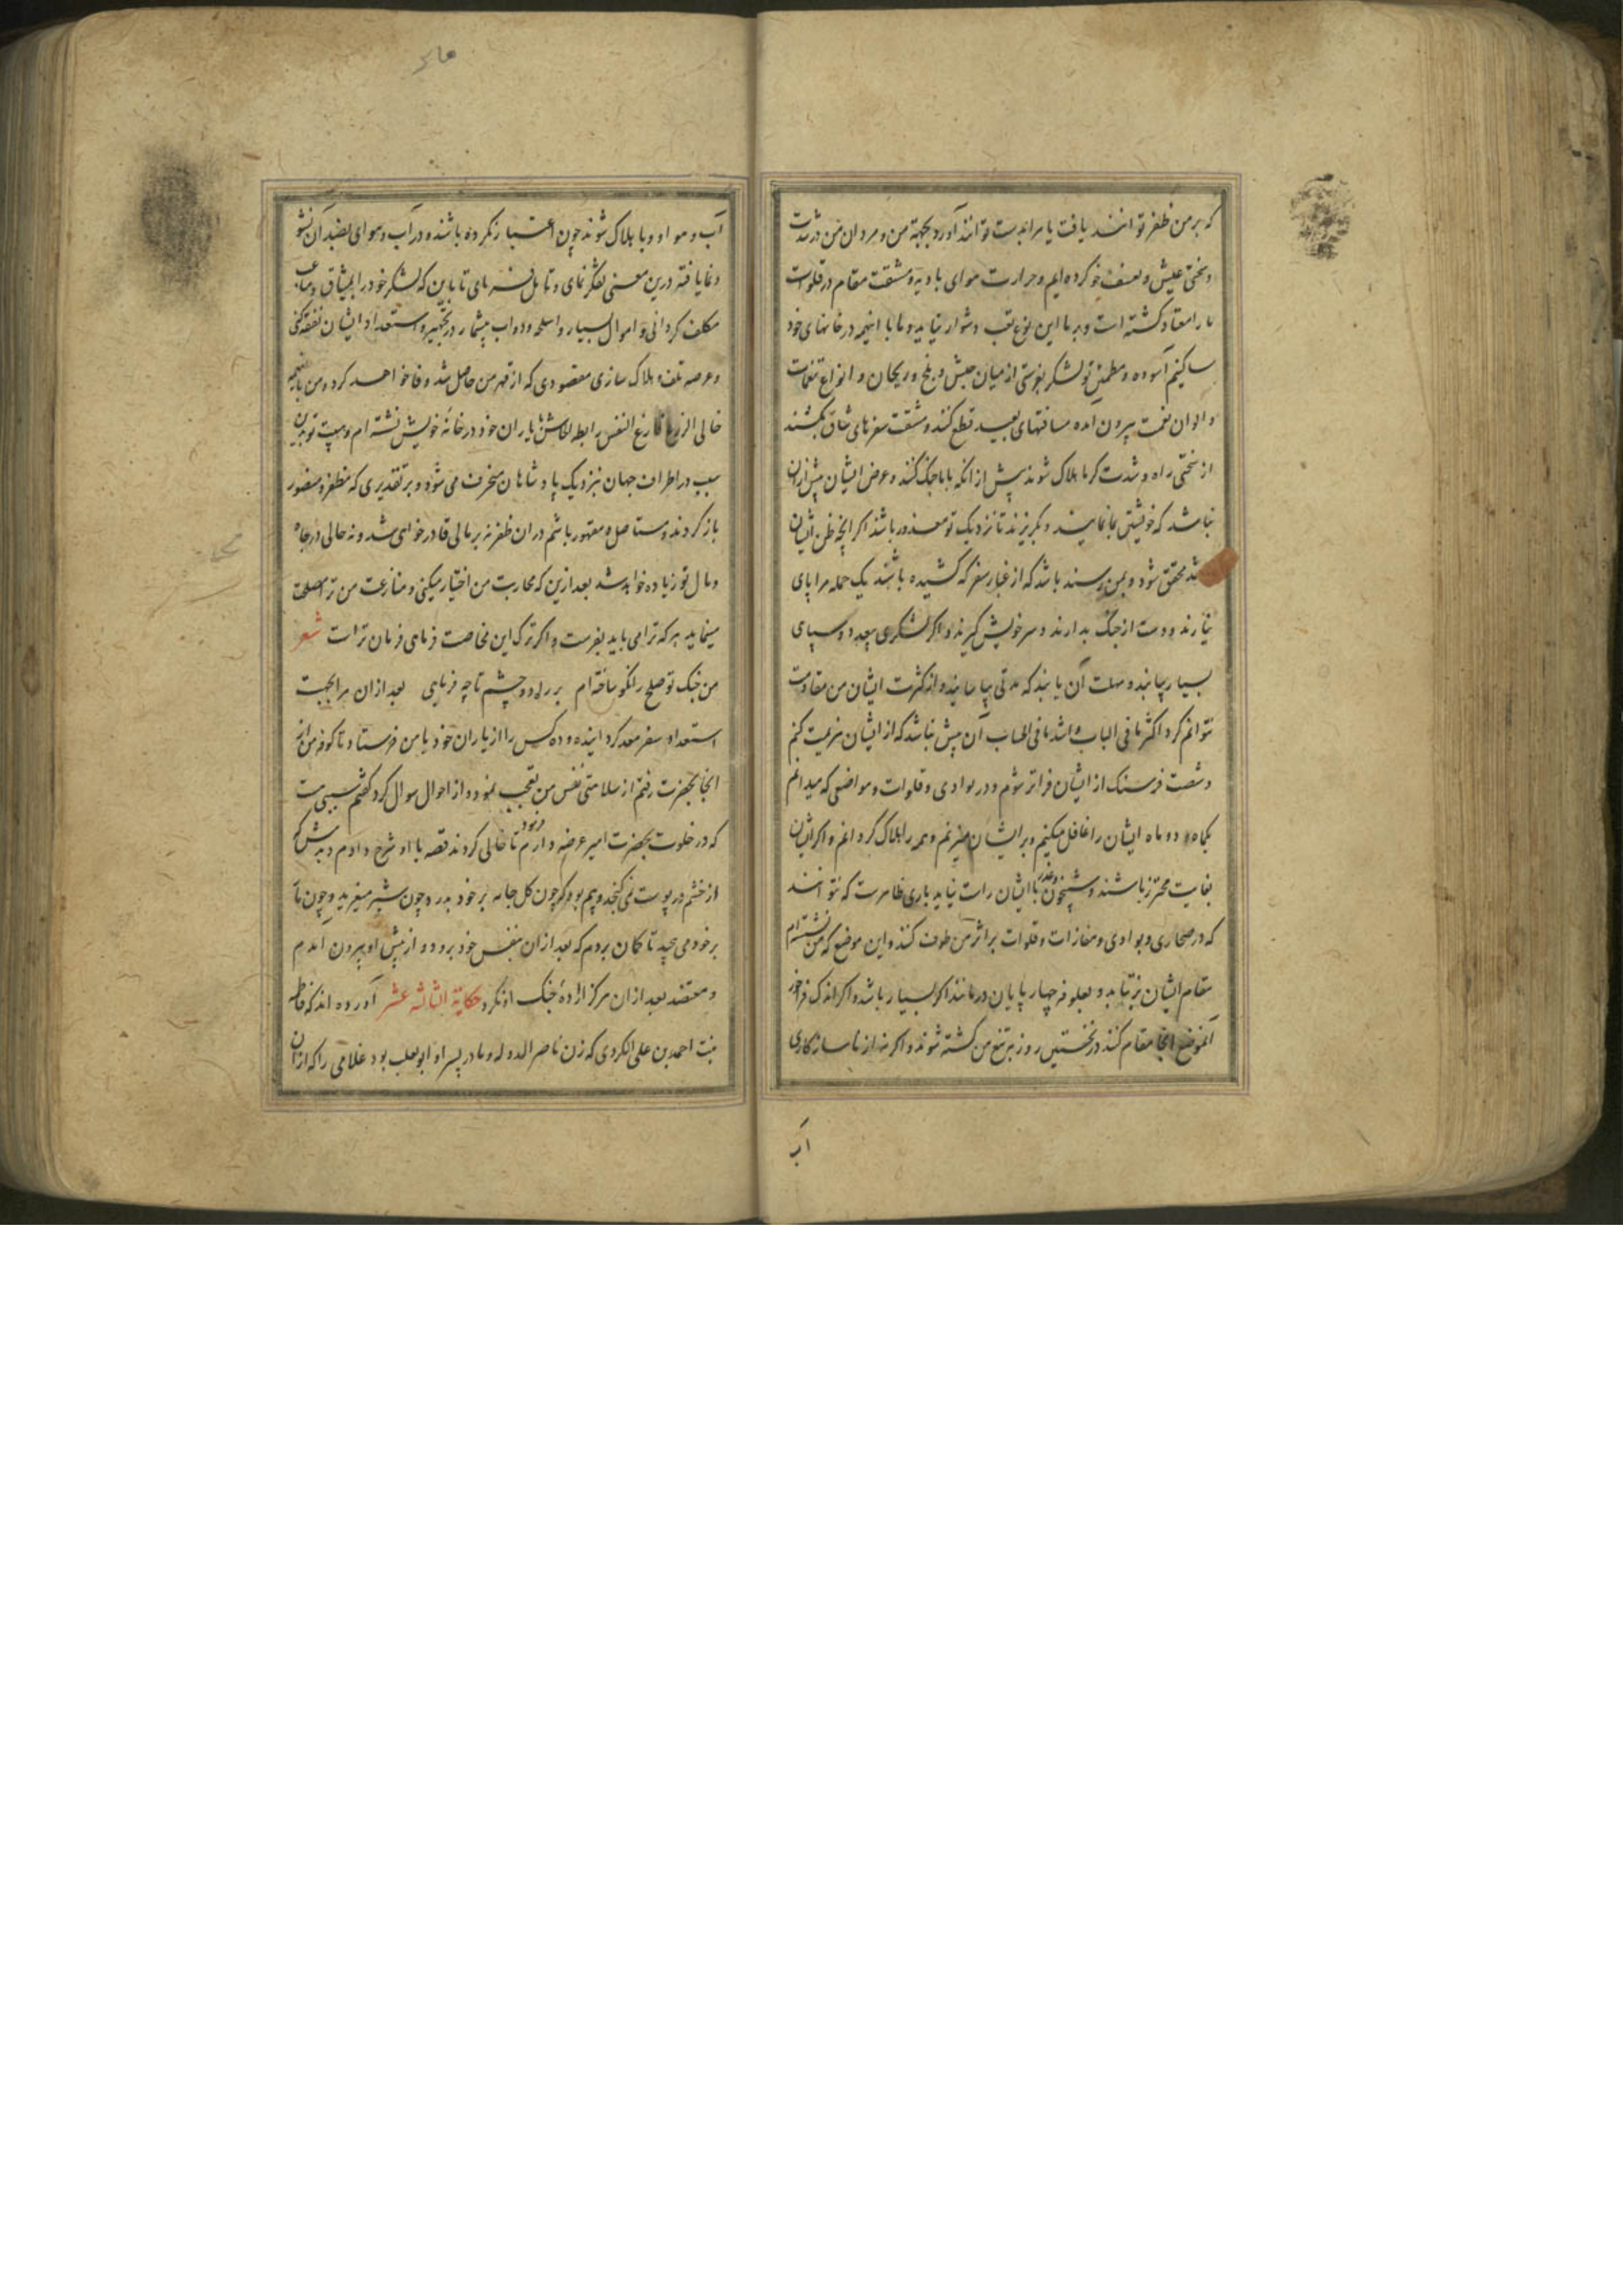 که بر من ظفر توانند یافت یا مرا بدست توانند آورد بجهة من و مردان من در شدت
و سختی عیش و تعسف خو کرده ایم و حرارت هوای بادیه و مشقت مقام در فلوات
ما را معتاد کشته است و بر ما این نوع تعب دشوار نیاید و ما با اینهمه در خانهای خود
ساکنیم آسوده و مطمئن تو لشکر بفرستی از میان خیش و یخ و ریحان و انواع تنعمات
و الوان نعمت بیرون آمده مسافتهای بعید قطع کنند و مشقت سفرهای شاق بکشند
از سختی راه و شدت کرما هلاک شوند پیش از انکه با ما جنک کنند و غرض ایشان بیش ازان
نباشد که خویشتن بما نمایند و بکریزند تا نزدیک تو معذور باشند اکر انچه ظن ایشان
شد محقق شود و بمن رسند باشد که از غبار سفر که کشیده باشند یک حمله مرا پای
نیارند و دست از جنک بدارند و سر خویش کیرند و اکر لشکری بیعدد و سپاهی
بسیار بیایند و مهلت آن یابند که مدتی بیاسایند و از کثرت ایشان من مقاومت
نتوانم کرد اکثر ما فی الباب و اشد ما فی الحساب آن بیش نباشد که از ایشان هزیمت کنم
و شصت فرسنک از ایشان فراتر شوم و در بوادی و فلوات و مواضعی که میدانم
یکماه و دو ماه ایشان را غافل میکنیم و بر ایشان میزنم و همه را هلاک کردانم و اکر ایشان
بغایت محترز باشند و شبیخون و غدر با ایشان راست نیاید باری ظاهرست که نتوانند
که در صحاری و بوادی و مفازات و فلوات بر اثر من طوف کنند و این موضع که من نشسته ام
مقام ایشان برنتابد و بعلوفه چهارپایان درمانند اکر بسیار باشد و اکر اندک فراخور
آنموضع انجا مقام کنند در نخستین روز بر تیغ من کشته شوند و اکر نه از ناسازکاری
آب
آب و هوا و وبا هلاک شوند چون اعتیاد نکرده باشند و در آب و هوای بضد آن نشو
و نما یافته درین معنی تفکر نمای و تامل فرمای تا باین که لشکر خود را بمشاق و متاعب
مکلف کردانی و اموال بسیار و اسلحه و دواب بیشمار در تجهیز و استعداد ایشان نفقه کنی
و عرصه تلف و هلاک سازی مقصودی که از قهر من حاصل شد وفا خواهد کرد و من با اینهمه
خالی الذرع فارغ النفس رابط الجاش با یاران خود در خانه خویش نشسته ام و هیبت تو بدین
سبب در اطراف جهان بنزدیک پادشاهان منخرق می شود و بر تقدیری که مظفر و منصور
باز کردند و مستاصل و مقهور باشم در ان ظفر نه بر مالی قادر خواهی شد و نه حالی در جاه
و مال تو زیاده خواهد شد بعد ازین که محاربت من اختیار میکنی و منازعت من ترا مصلحت
مینماید هر که ترا می باید بفرست و اکر ترک این مخاصمت فرمای فرمان تراست شعر
من جنک تو صلح را نکو ساخته ام بر راه دو چشم تا چه فرمایی بعد ازان مرا بجهت
استعداد سفر معد کردانیده و ده کس را از یاران خود با من فرستاد تا کوفه من از
انجا بحضرت رفتم از سلامتی نفس من تعجب نمود و از احوال سوال کرد کفتم سببی هست
که در خلوت بحضرت امیر عرضه دارم فرمود تا خالی کردند قصه با او شرح دادم دیدمش که
از خشم در پوست نمی کنجد و بیم بود که چون کل جامه بر خود بدرد چون شیر میغرید و چون مار
بر خود می پیچید تا کمان بردم که بعد ازان بنفس خود برود و از پیش او بیرون آمدم
و معتضد بعد ازان هرکز ارادهٔ جنک او نکرد حکایة الثالثه عشر آورده اند که فاطمه
بنت احمد بن علی الکردی که زن ناصر الدوله و مادر پسر او ابو تغلب بود غلامی را که از ان